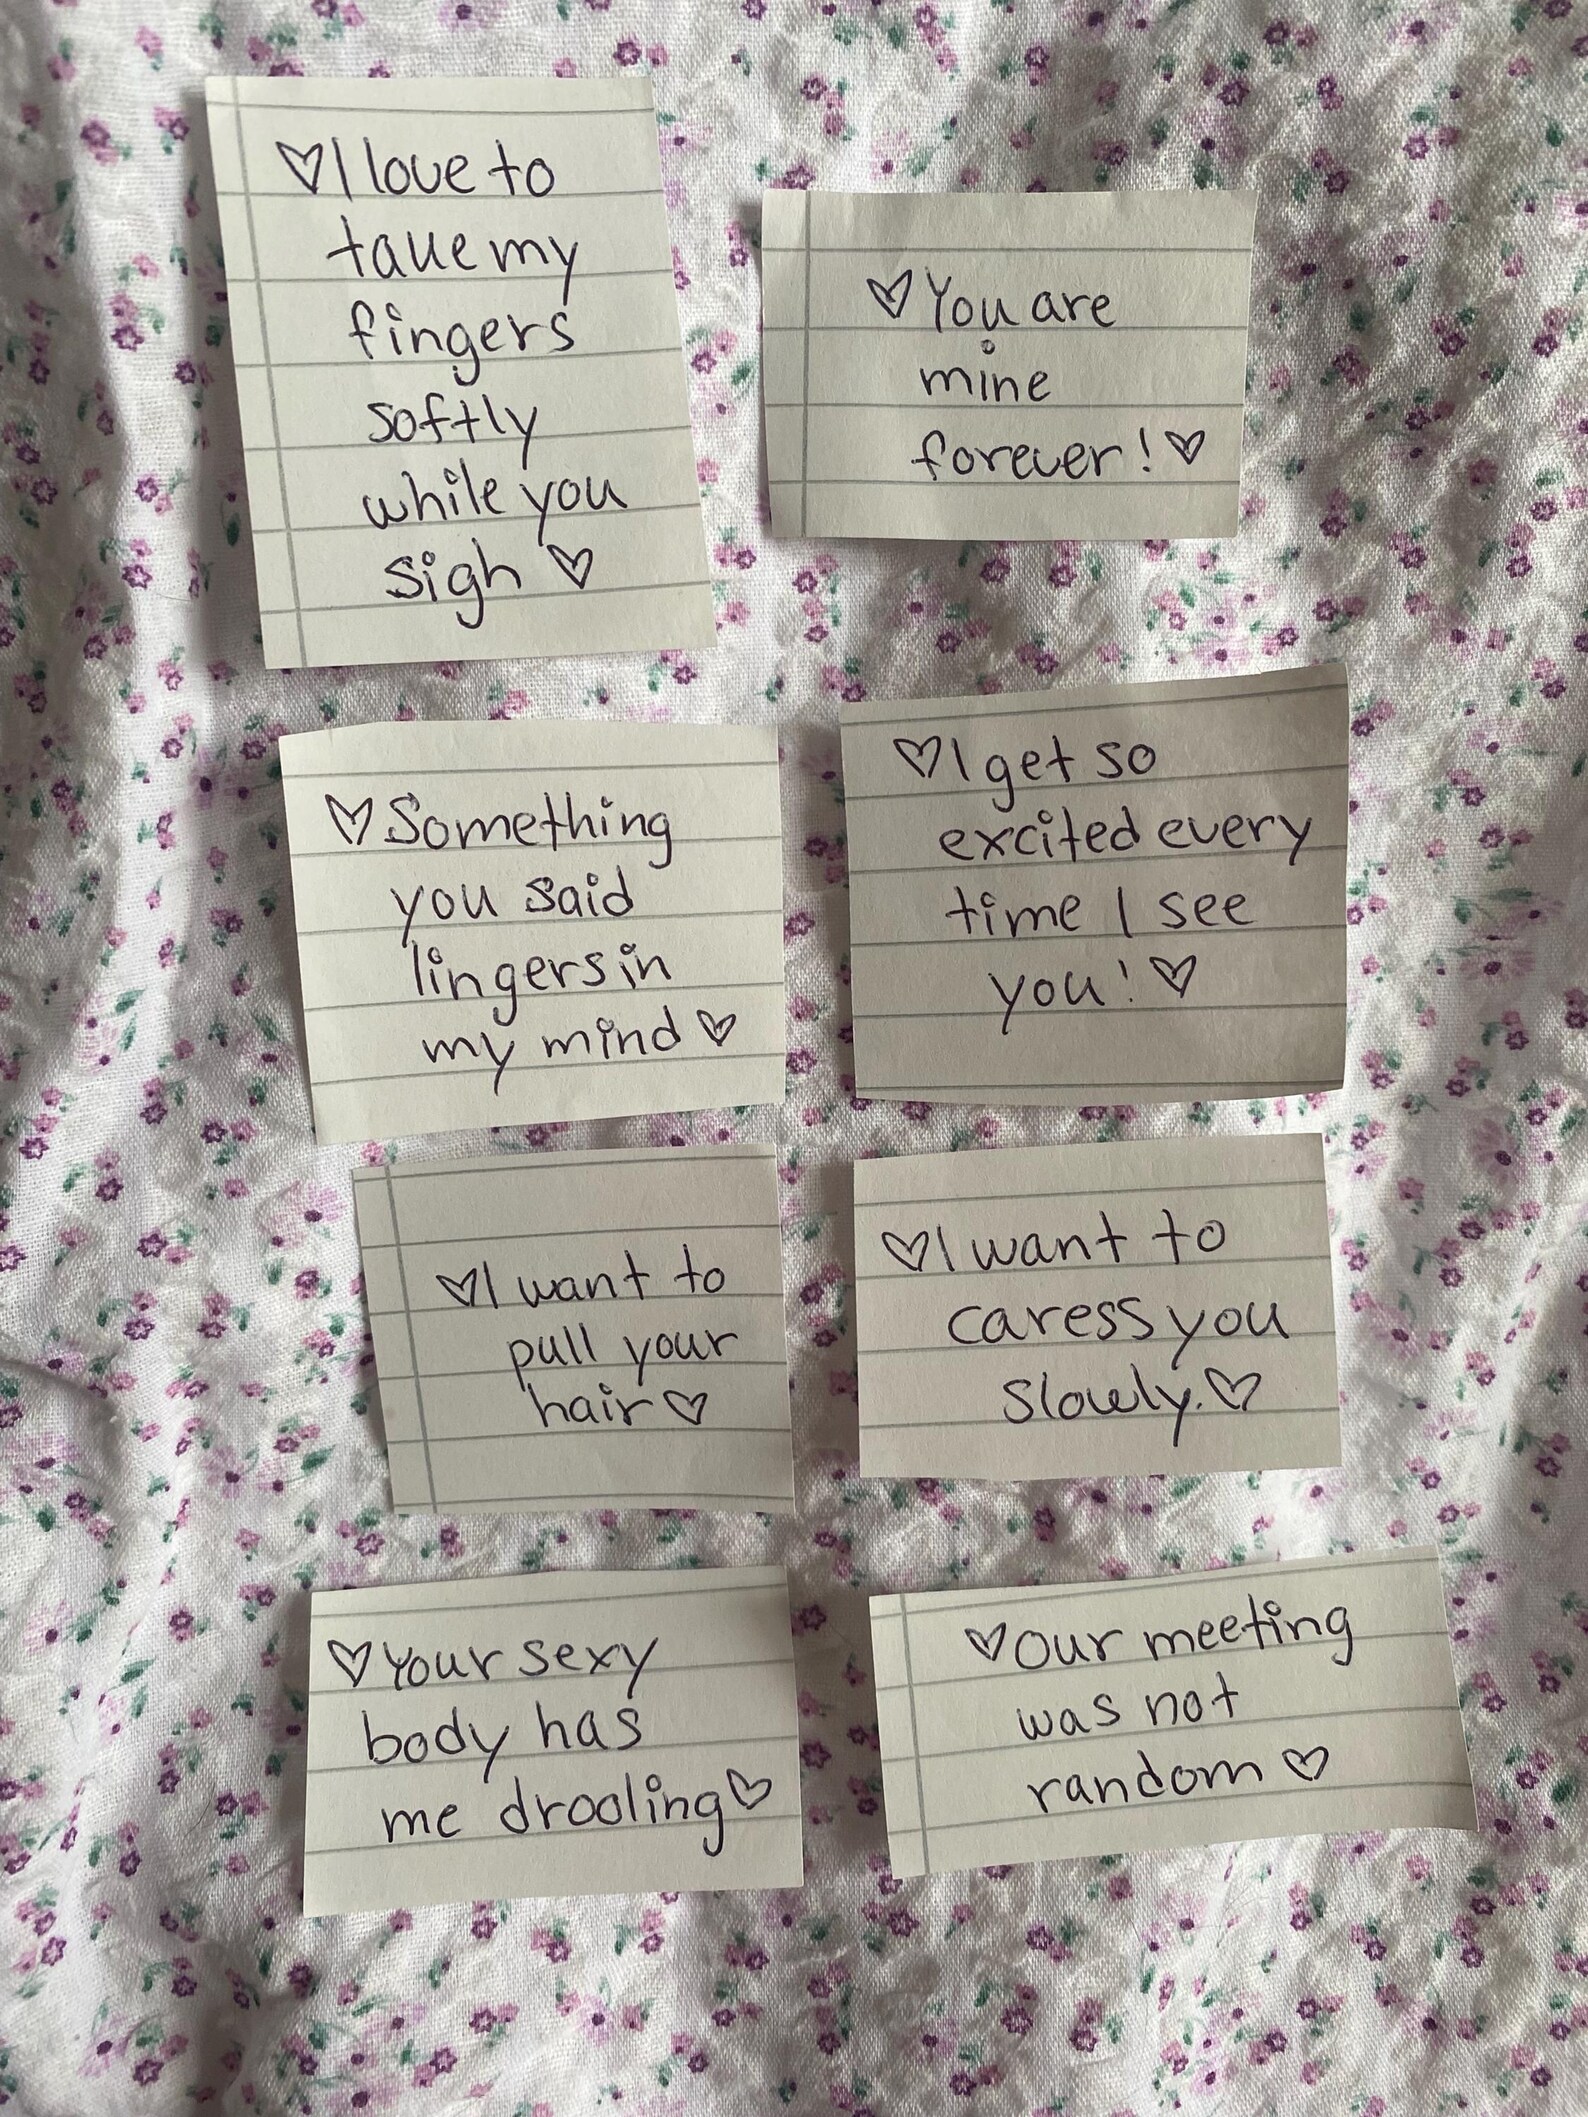 ♡I love to
take my
fingers
softly
while you
sigh ♡
♡You are
mine
forever!♡
♡Something
you said
lingers in
my mind♡
♡I get so
excited every
time I see
you!♡
♡I want to
pull your
hair♡
♡I want to
caress you
slowly.♡
♡Your sexy
body has
me drooling♡
♡Our meeting
was not
random♡